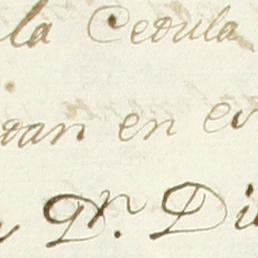 la Cedula
van en
Dn. Di